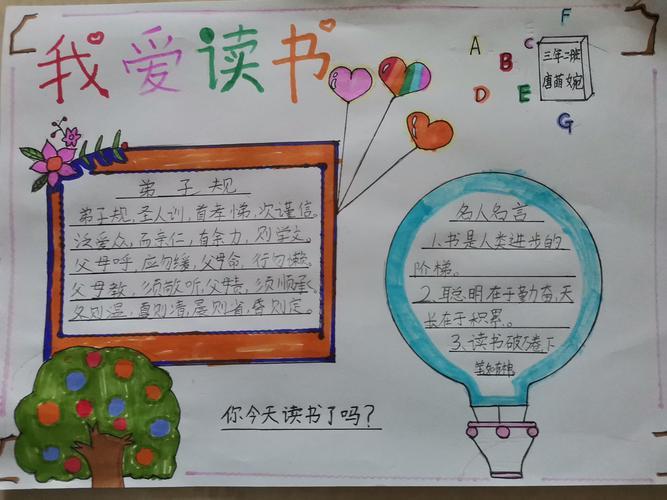 我爱读书
A
B
C
D
E
F
G
三年二班
唐萌婉
弟子规
弟子规,圣人训,首孝悌,次谨信。
泛爱众,而亲仁,有余力,则学文。
父母呼,应勿缓,父母命,行勿懒。
父母教,须敬听,父母责,须顺承,
冬则温,夏则凊,晨则省,昏则定。
名人名言
1.书是人类进步的
阶梯。
2.聪明在于勤奋,天
长在于积累。
3.读书破万卷,下
笔如有神
你今天读书了吗?